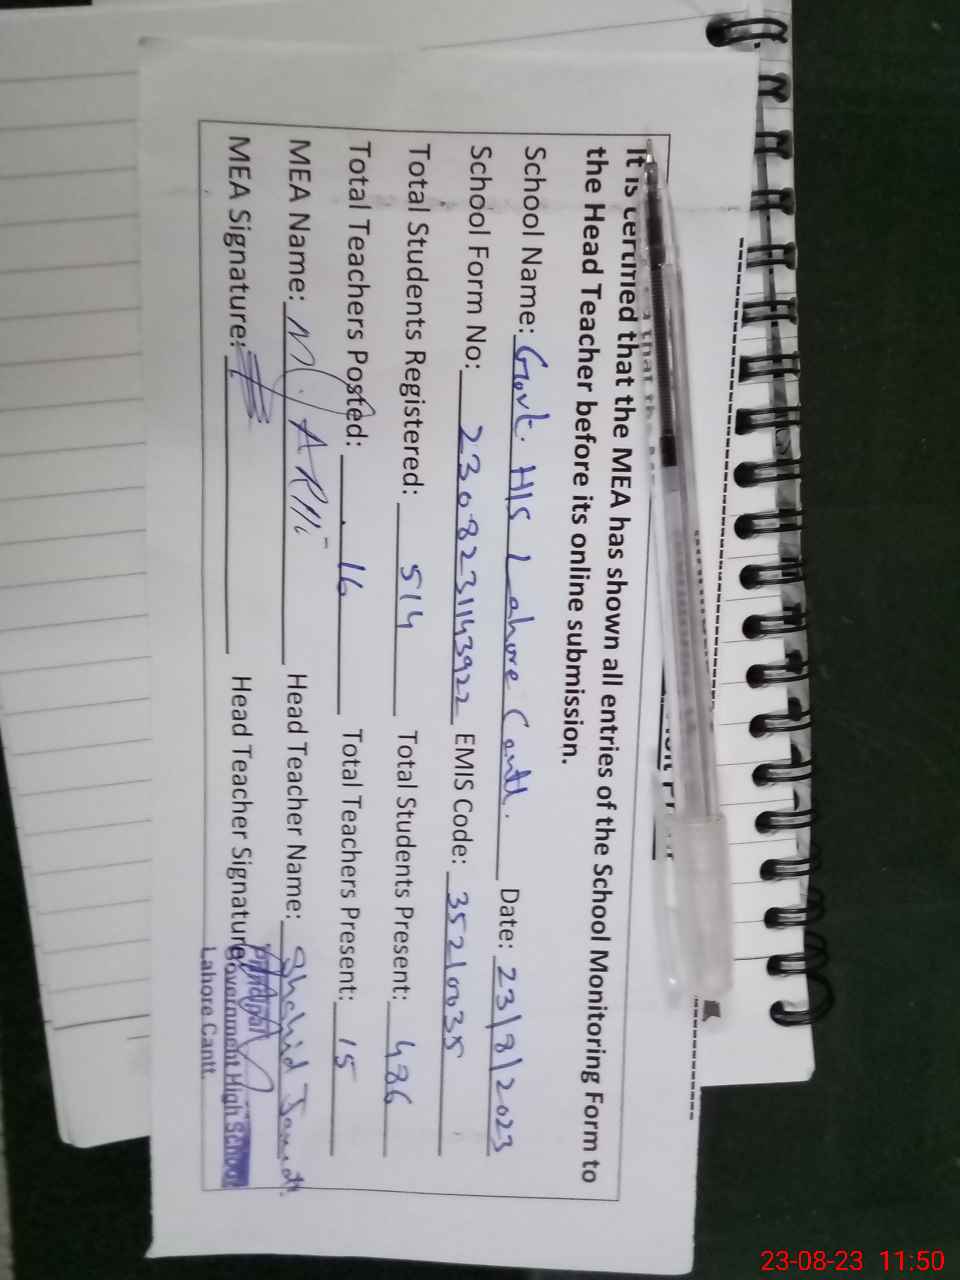 It is certified that the MEA has shown all entries of the School Monitoring Form to
the Head Teacher before its online submission.
School Name: Govt. H/S Lahore Cantt. Date: 23/8/2023
School Form No: 2308231143922 EMIS Code: 35210035
Total Students Registered: 514 Total Students Present: 486
Total Teachers Posted: 16 Total Teachers Present: 15
MEA Name: M. Head Teacher Name: Shahid
MEA Signature: Head Teacher Signature:
Principal
Government High School
Lahore Cantt.
23-08-23 11:50